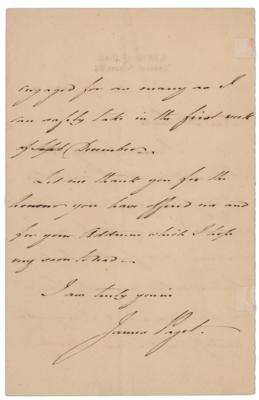 engaged for as many as I
can safely take in the first week
of December.
Let me thank you for the
honour you have offered me and
for your Address which I hope
soon to read.
I am truly yours
James Paget.